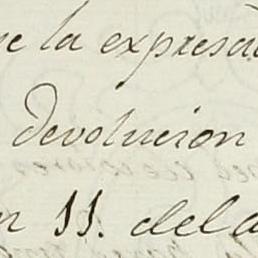 la expresa
devolucion
11. dela